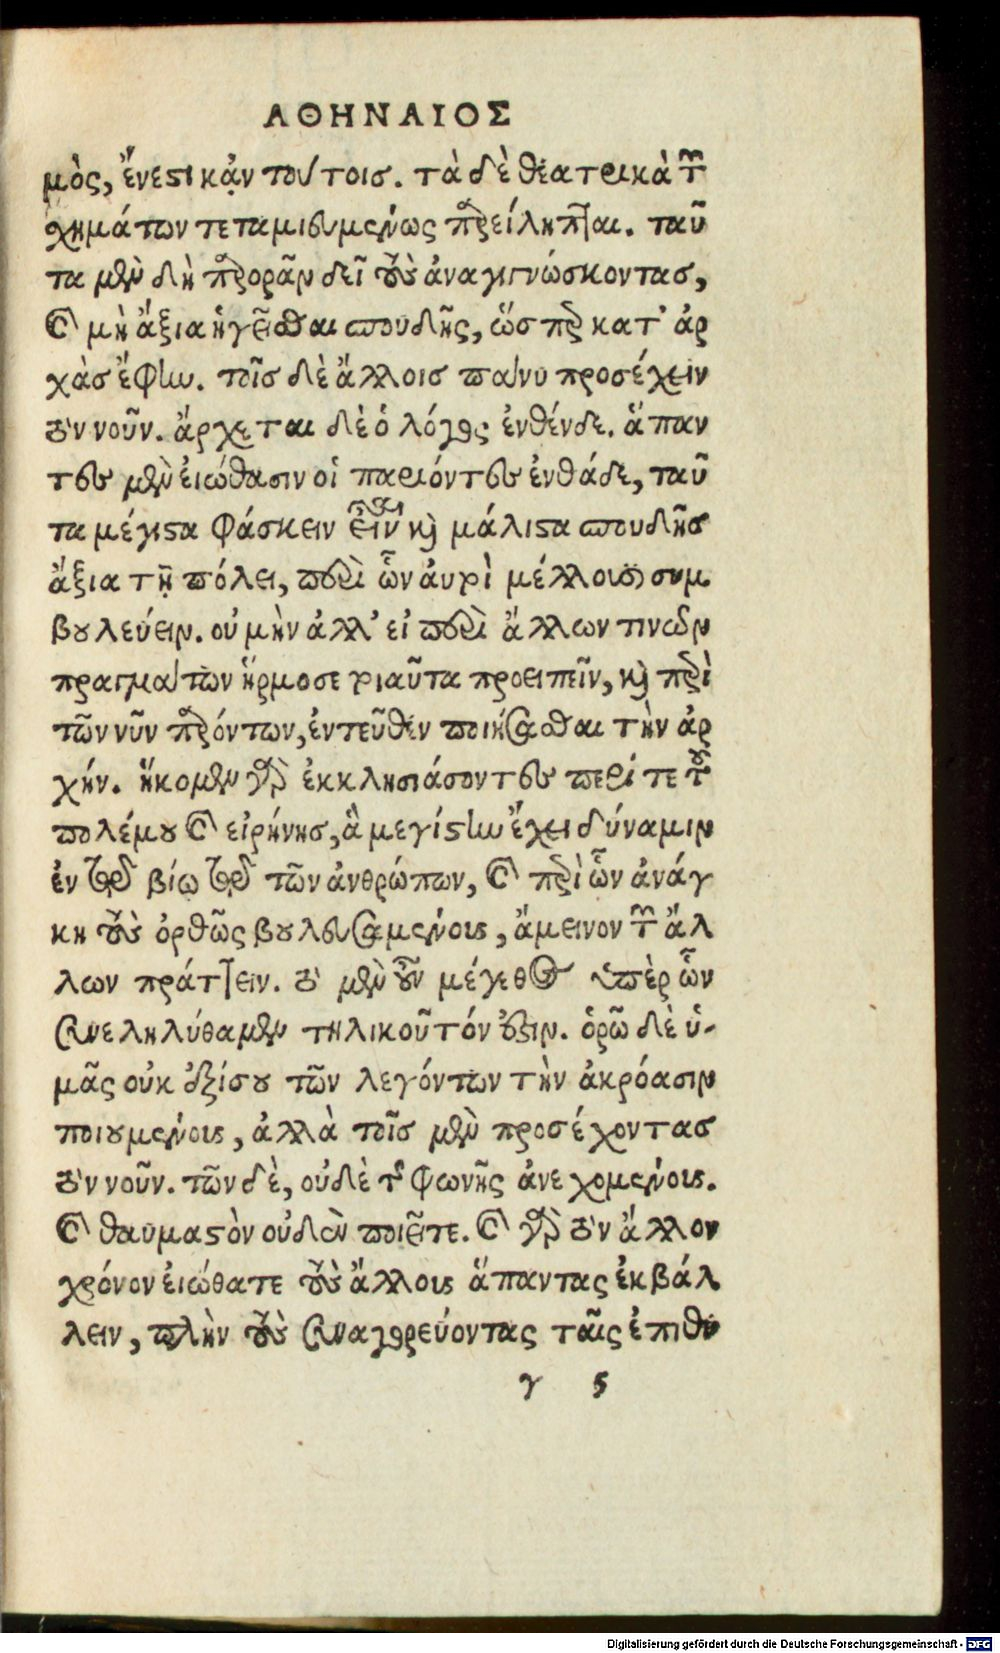 ΑΘΗΝΑΙΟΣ
μὸς, ἔνεστι κᾀν τούτοις. τὰ δὲ θεατρικὰ τῶν
χημάτων τεταμιευμένως παρείληπται. ταῦ
τα μὲν δὴ παρορᾶν δεῖ τοὺς ἀναγιγνώσκοντας,
καὶ μὴ ἄξια ἡγεῖσθαι σπουδῆς, ὥσπερ κατ' ἀρ
χὰς ἔφην. τοῖς δὲ ἄλλοις πάνυ προσέχειν
τὸν νοῦν. ἄρχεται δὲ ὁ λόγος ἐνθένδε. ἅπαν
τες μὲν εἰώθασιν οἱ παριόντες ἐνθάδε, ταῦ
τα μέγιστα φάσκειν εἶναι καὶ μάλιστα σπουδῆς
ἄξια τῇ πόλει, περὶ ὧν αὐτοὶ μέλλουσι συμ
βουλεύειν. οὐ μὴν ἀλλ' εἰ περὶ ἄλλων τινῶν
πραγμάτων ἥρμοσε τοιαῦτα προειπεῖν, καὶ περὶ
τῶν νῦν παρόντων, ἐντεῦθεν ποιήσασθαι τὴν ἀρ
χήν. ἥκομεν γὰρ ἐκκλησιάσοντες περί τε τοῦ
πολέμου καὶ εἰρήνης, ἃ μεγίστην ἔχει δύναμιν
ἐν τῷ βίῳ τῷ τῶν ἀνθρώπων, καὶ περὶ ὧν ἀνάγ
κη τοὺς ὀρθῶς βουλευσαμένους, ἄμεινον τῶν ἄλ
λων πράττειν. τὸ μὲν οὖν μέγεθος ὑπὲρ ὧν
συνεληλύθαμεν τηλικοῦτόν ἐστιν. ὁρῶ δὲ ὑ-
μᾶς οὐκ ἐξίσου τῶν λεγόντων τὴν ἀκρόασιν
ποιουμένους, ἀλλὰ τοῖς μὲν προσέχοντας
τὸν νοῦν. τῶν δὲ, οὐδὲ τῆς φωνῆς ἀνεχομένους.
καὶ θαυμαστὸν οὐδὲν ποιεῖτε. καὶ γὰρ τὸν ἄλλον
χρόνον εἰώθατε τοὺς ἄλλους ἅπαντας ἐκβάλ
λειν, πλὴν τοὺς συναγορεύοντας ταῖς ἐπιθυ
γ 5
Digitalisierung gefördert durch die Deutsche Forschungsgemeinschaft - DFG